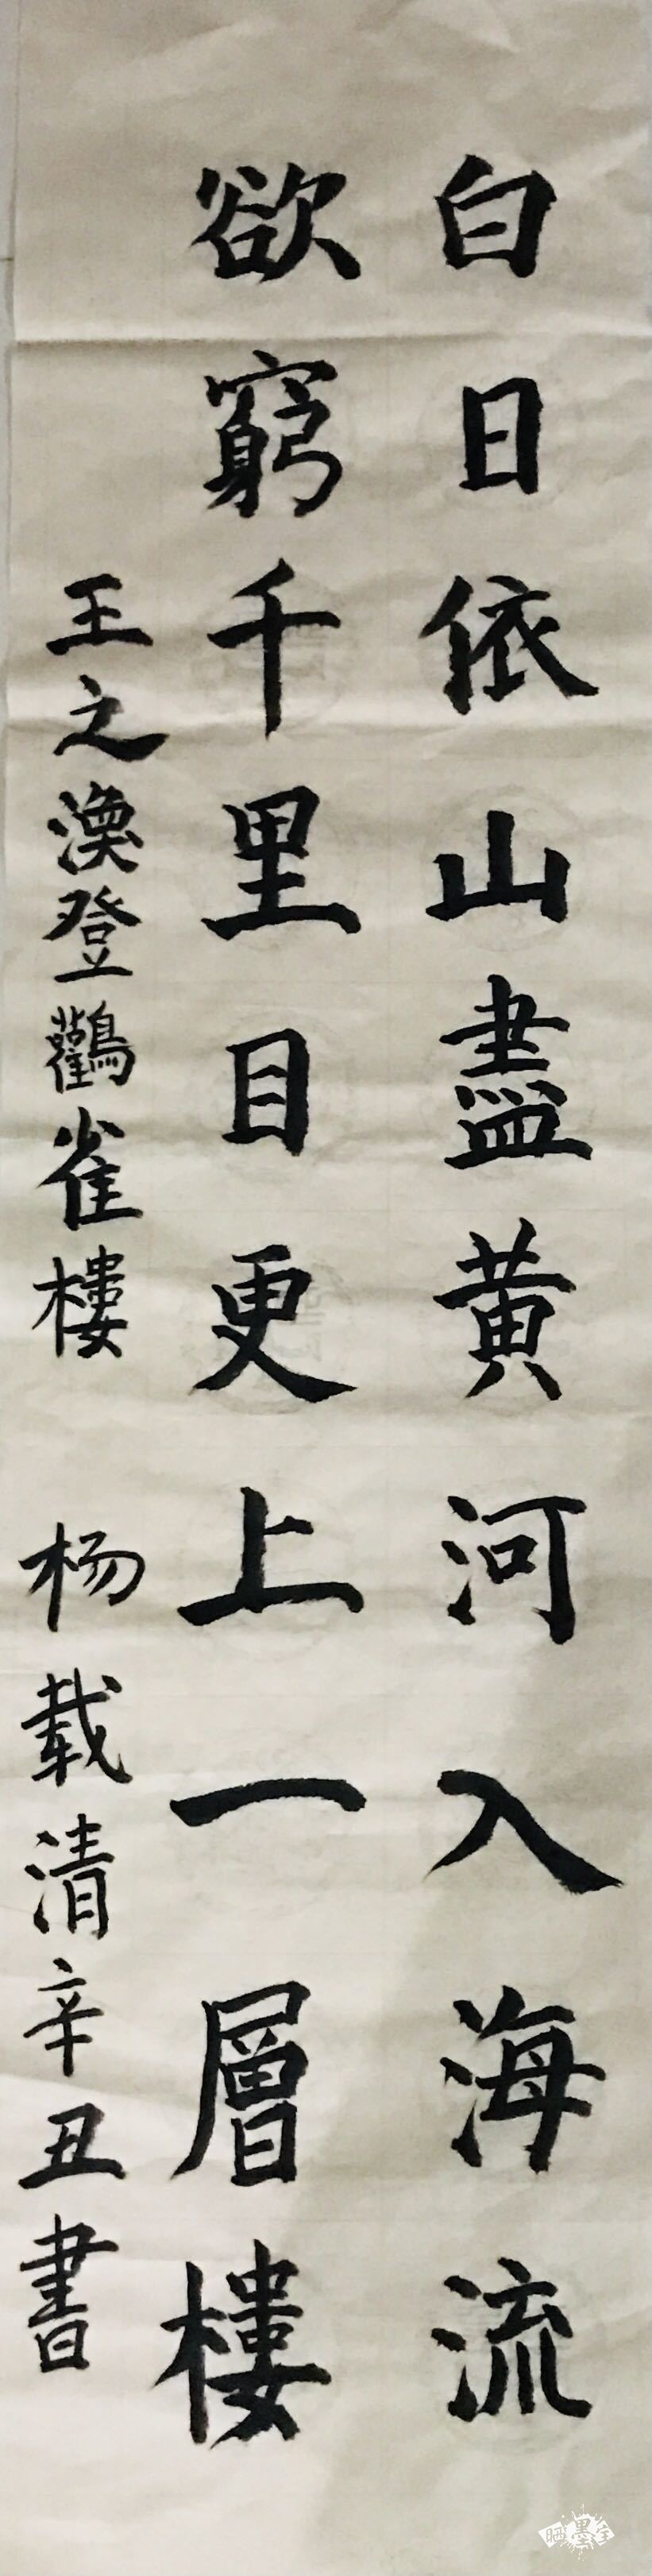 白日依山盡黃河入海流
欲窮千里目更上一層樓
王之渙登鸛雀樓 杨载清辛丑書
晒墨宝